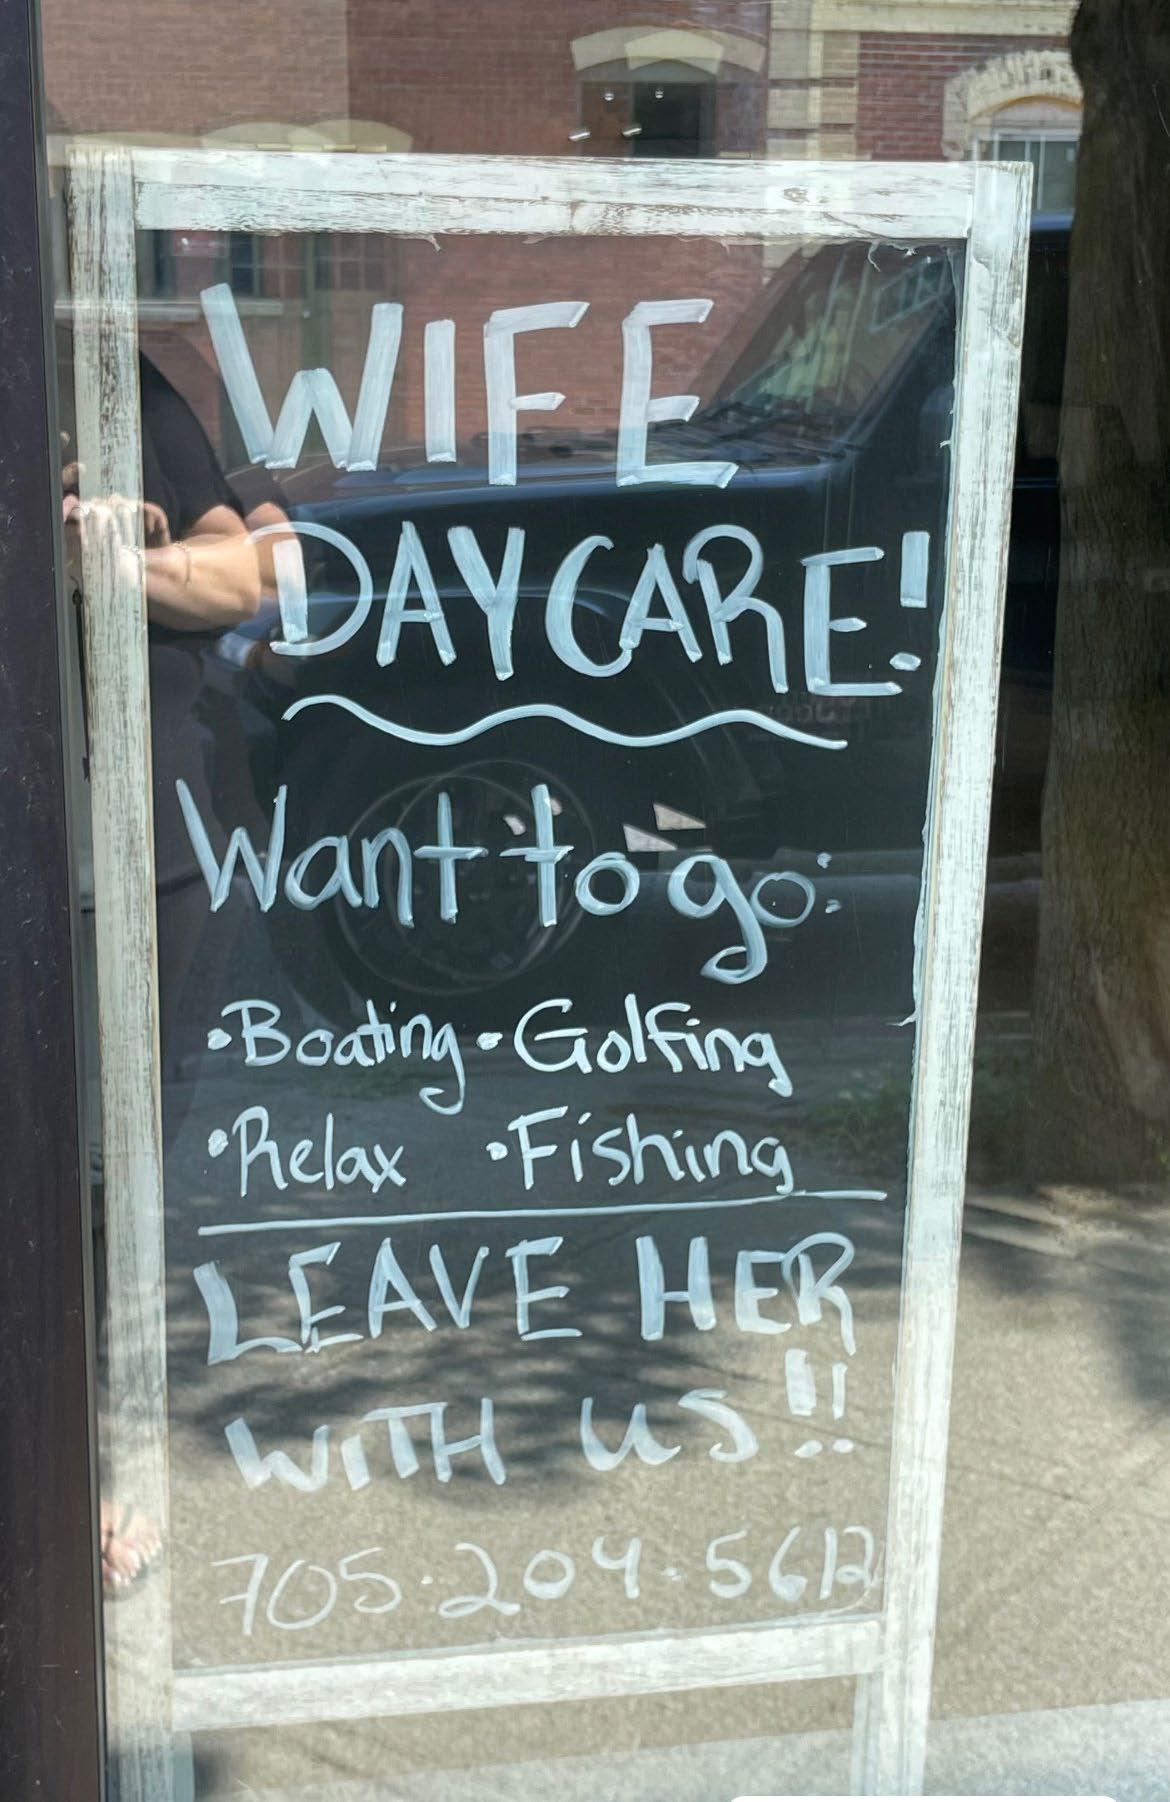 WIFE
DAYCARE!
Want to go:
• Boating • Golfing
• Relax • Fishing
LEAVE HER
WITH US!!
705-204-5612